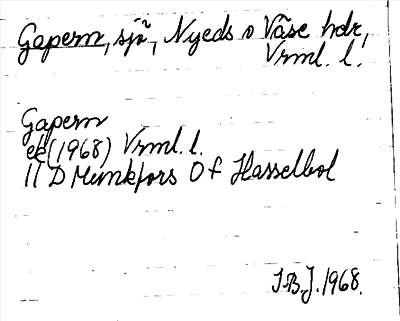 Gapern, sjö, Nyeds o Väse hdr,
Vrml. l.
Gapern
ek (1968) Vrml. l.
11 D Munkfors 0 f Hasselbol
I.B.J. 1968.